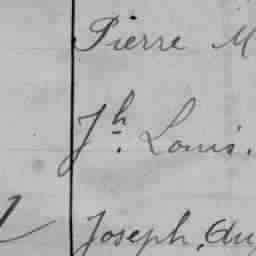 Pierre M
Jh. Louis.
Joseph, Au